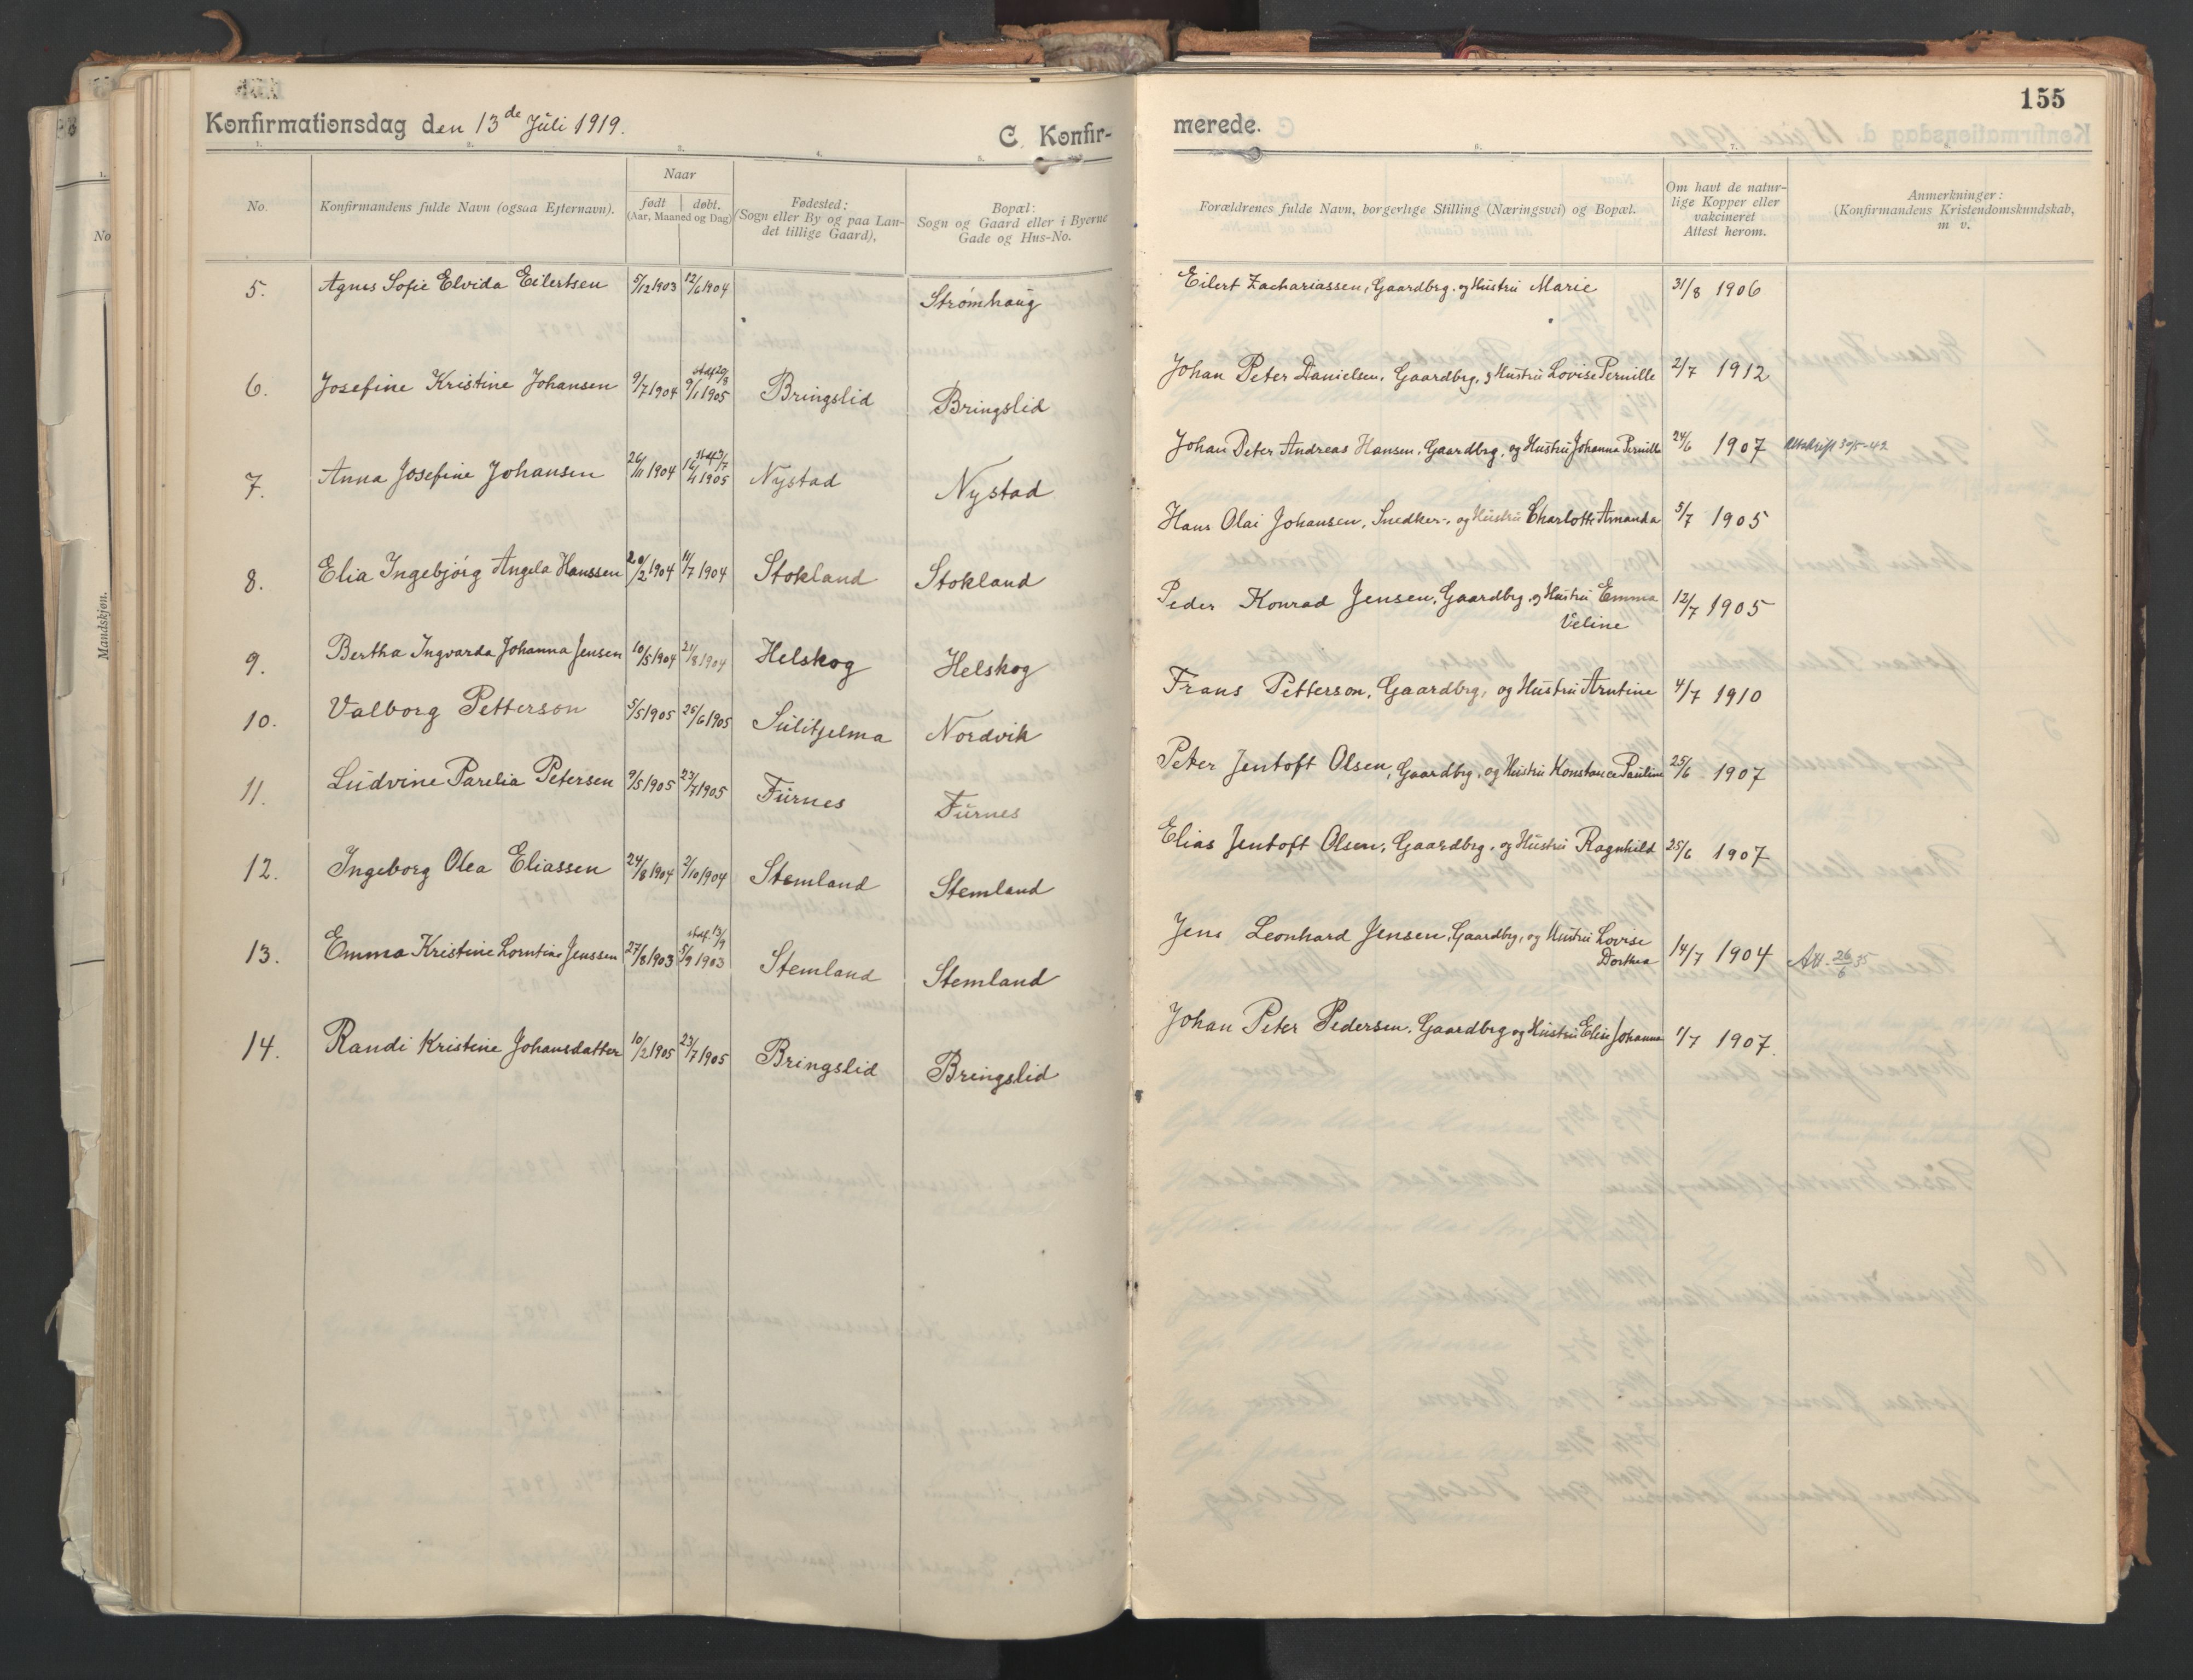 155
Konfirmationsdag den 13de Juli 1919.
C. Konfir-
merede.
1. 2. 3. 4. 5. 6. 7. 8.
No.
Konfirmandens fulde Navn (ogsaa Efternavn).
Naar
født døbt.
(Aar, Maaned og Dag)
Fødested:
(Sogn eller By og paa Lan-
det tillige Gaard),
Bopæl:
Sogn og Gaard eller i Byerne
Gade og Hus-No.
Forældrenes fulde Navn, borgerlige Stilling (Næringsvei) og Bopæl.
Om havt de natur-
lige Kopper eller
vakcineret
Attest herom.
Anmerkninger:
(Konfirmandens Kristendomskundskab,
m v.
No
Mandskjøn.
5. Agnes Sofie Elvida Eilertsen 5/12 1903 12/6 1904 Strømhaug Eilert Zachariassen, Gaardbrg. og Hustru Marie 31/8 1906
6. Josefine Kristine Johansen 9/7 1904 stadf 20/8 9/1 1905 Bringslid Bringslid Johan Peter Danielsen, Gaardbrg, og Hustru Lovise Pernille 2/7 1912
7. Anna Josefine Johansen 26/11 1904 1905 Nystad Nystad Johan Peter Andreas Hansen, Gaardbrg, og Hustru Johanna Pernille 24/6 1907 Attskrift 30/5-42
8. Elia Ingebjørg Angela Hanssen 20/2 1904 11/7 1904 Stokland Stokland Hans Olai Johansen, Snedker, og Hustru Charlotte Amanda 5/7 1905
9. Bertha Ingvarda Johanna Jensen 10/5 1904 21/8 1904 Helskog Helskog Peder Konrad Jensen, Gaardbrg, og Hustru Emma
Veline 12/7 1905
10. Valborg Petterson 5/5 1905 25/6 1905 Sulitjelma Nordvik Frans Petterson, Gaardbrg, og Hustru Arntine 4/7 1910
11. Ludvine Parelia Petersen 9/5 1905 23/7 1905 Furnes Furnes Peter Jentoft Olsen, Gaardbrg, og Hustru Konstance Pauline 25/6 1907
12. Ingeborg Olea Eliassen 24/8 1904 2/10 1904 Stemland Stemland Elias Jentoft Olsen, Gaardbrg, og Hustru Ragnhild 25/6 1907
13. Emma Kristine Lorntine Jenssen 27/8 1903 stadf. 13/9 5/9 1903 Stemland Stemland Jens Leonhard Jensen, Gaardbrg, og Hustru Lovise
Dorthea 14/7 1904 Att. 26/6 35
14. Randi Kristine Johansdatter 10/2 1905 23/7 1905 Bringslid Bringslid Johan Peter Pedersen, Gaardbrg og Hustru Elise Johanna 1/7 1907.